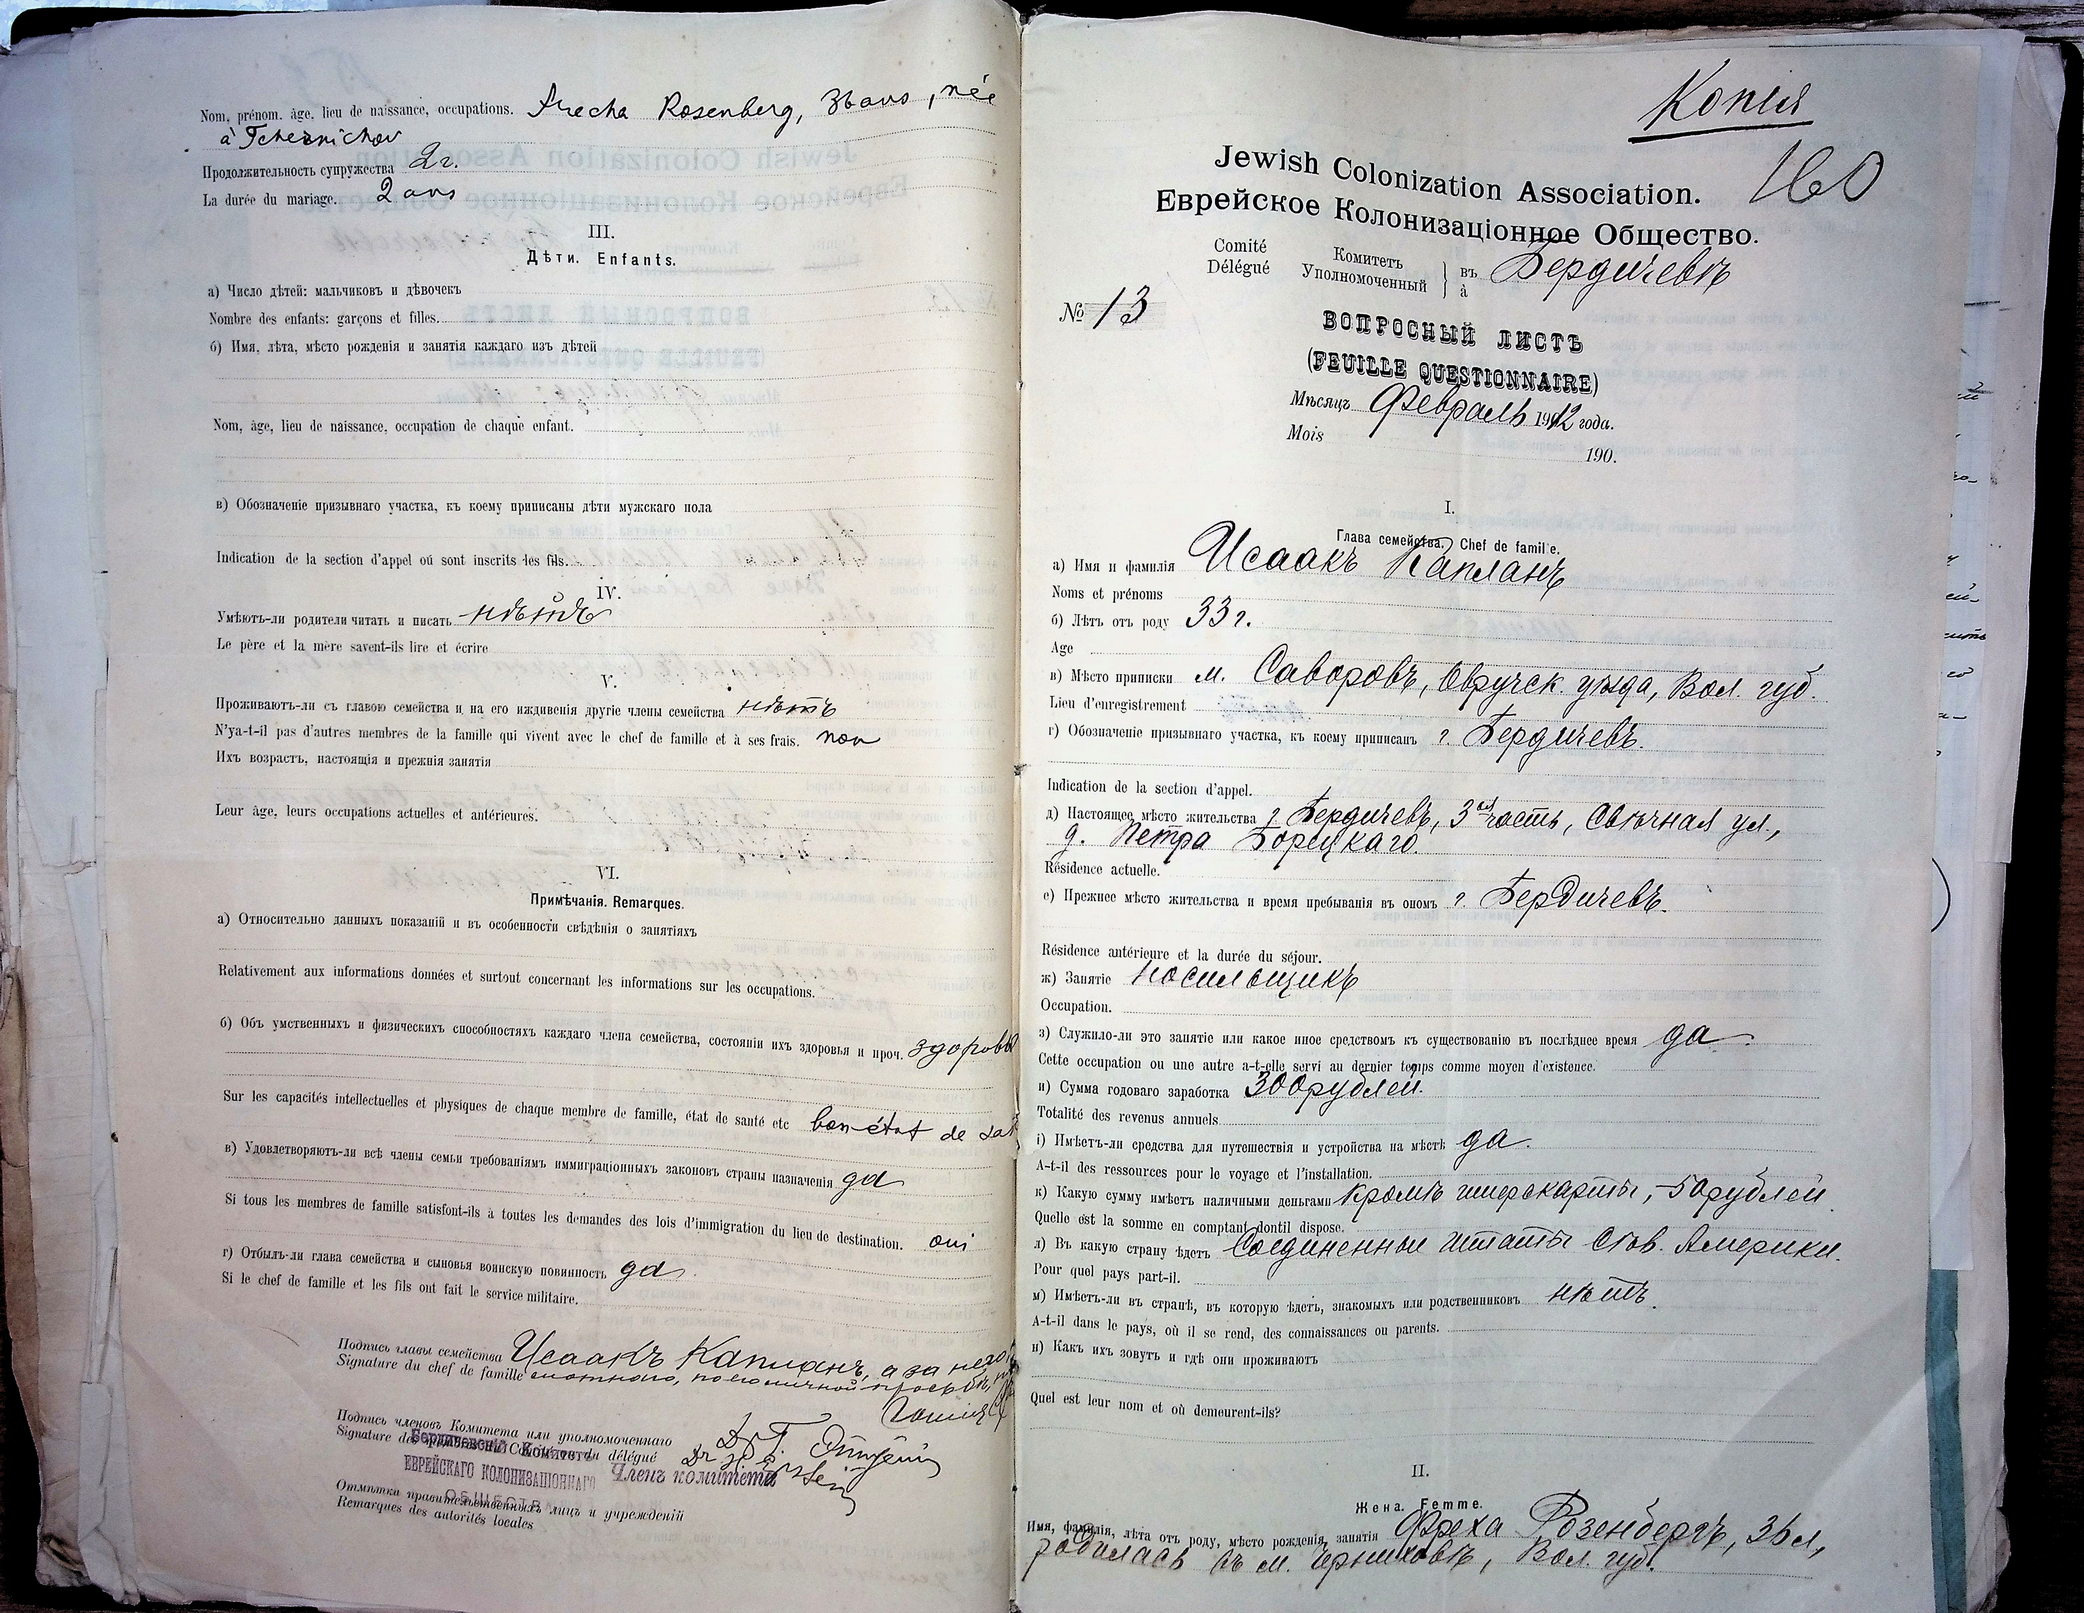 Nom, prénom. âge. lieu de naissance, occupations. Rosenberg, 36 ans, née
à Tchernichov
Продолжительность супружества 2 г.
La durée du mariage. 2 ans
III.
Дѣти. Enfants.
а) Число дѣтей: мальчиковъ и дѣвочекъ
Nombre des enfants: garçons et filles.
б) Имя, лѣта, мѣсто рожденія и занятія каждаго изъ дѣтей
Nom, âge, lieu de naissance, occupation de chaque enfant.
в) Обозначеніе призывнаго участка, къ коему приписаны дѣти мужскаго пола
Indication de la section d'appel oú sont inscrits les fils.
IV.
Умѣютъ-ли родители читать и писать нѣтъ
Le père et la mère savent-ils lire et écrire
V.
Проживаютъ-ли съ главою семейства и на его иждивенія другіе члены семейства нѣтъ
N'ya-t-il pas d'autres membres de la famille qui vivent avec le chef de famille et à ses frais. non
Ихъ возрастъ, настоящія и прежнія занятія
Leur âge, leurs occupations actuelles et antérieures.
VI.
Примѣчанія. Remarques.
а) Относительно данныхъ показаній и въ особенности свѣдѣнія о занятіяхъ
Relativement aux informations données et surtout concernant les informations sur les occupations.
б) Объ умственныхъ и физическихъ способностяхъ каждаго члена семейства, состояніи ихъ здоровья и проч. здоровы
Sur les capacités intellectuelles et physiques de chaque membre de famille, état de santé etc bon état de
в) Удовлетворяютъ-ли всѣ члены семьи требованіямъ иммиграціонныхъ законовъ страны назначенія да
Si tous les membres de famille satisfont-ils à toutes les demandes des lois d'immigration du lieu de destination. oui
г) Отбылъ-ли глава семейства и сыновья воинскую повинность да
Si le chef de famille et les fils ont fait le service militaire.
Подпись главы семейства Исаакъ Капланъ, а за
Signature du chef de famille
Подпись членовъ Комитета или уполномоченнаго
Signature des du délégué Dr
Бердичевскій Комитетъ
ЕВРЕЙСКАГО КОЛОНИЗАЦІОННАГО Членъ комитета
ОБЩЕСТВА
Отмѣтки правительственныхъ лицъ и учрежденій
Remarques des autorités locales
Копія
160
Jewish Colonization Association.
Еврейское Колонизаціонное Общество.
Comité Комитетъ
Délégué Уполномоченный въ à Бердичевѣ
№ 13
ВОПРОСНЫЙ ЛИСТЪ
(FEUILLE QUESTIONNAIRE)
Мѣсяцъ Февраль 1912 года.
Mois 190.
I.
Глава семейства. Chef de famille.
а) Имя и фамилія Исаакъ Капланъ
Noms et prénoms
б) Лѣтъ отъ роду 33 г.
Age
в) Мѣсто приписки м. Саворовъ, Овручск. уѣзда, Вол. губ.
Lieu d'enregistrement
г) Обозначеніе призывнаго участка, къ коему приписанъ г. Бердичевъ.
Indication de la section d'appel.
д) Настоящее мѣсто жительства г. Бердичевъ, 3ая часть, ул.,
д. Петра Борецкаго.
Résidence actuelle.
е) Прежнее мѣсто жительства и время пребыванія въ ономъ г. Бердичевъ.
Résidence antérieure et la durée du séjour.
ж) Занятіе носильщикъ
Occupation.
з) Служило-ли это занятіе или какое иное средствомъ къ существованію въ послѣднее время да.
Cette occupation ou une autre a-t-elle servi au dernier temps comme moyen d'existence.
и) Сумма годоваго заработка 300 рублей.
Totalité des revenus annuels
і) Имѣетъ-ли средства для путешествія и устройства на мѣстѣ да.
A-t-il des ressources pour le voyage et l'installation.
к) Какую сумму имѣетъ наличными деньгами кромѣ шифскарты, 50 рублей
Quelle est la somme en comptant dontil dispose.
л) Въ какую страну ѣдетъ Соединенные Штаты Сѣв. Америки.
Pour quel pays part-il.
м) Имѣетъ-ли въ странѣ, въ которую ѣдетъ, знакомыхъ или родственниковъ нѣтъ.
A-t-il dans le pays, où il se rend, des connaissances ou parents.
н) Какъ ихъ зовутъ и гдѣ они проживаютъ
Quel est leur nom et où demeurent-ils?
II.
Жена. Femme.
Имя, фамилія, лѣта отъ роду, мѣсто рожденія, занятія Фреха Розенбергъ, 36 л,
родилась въ м. Черниховѣ, Вол. губ.